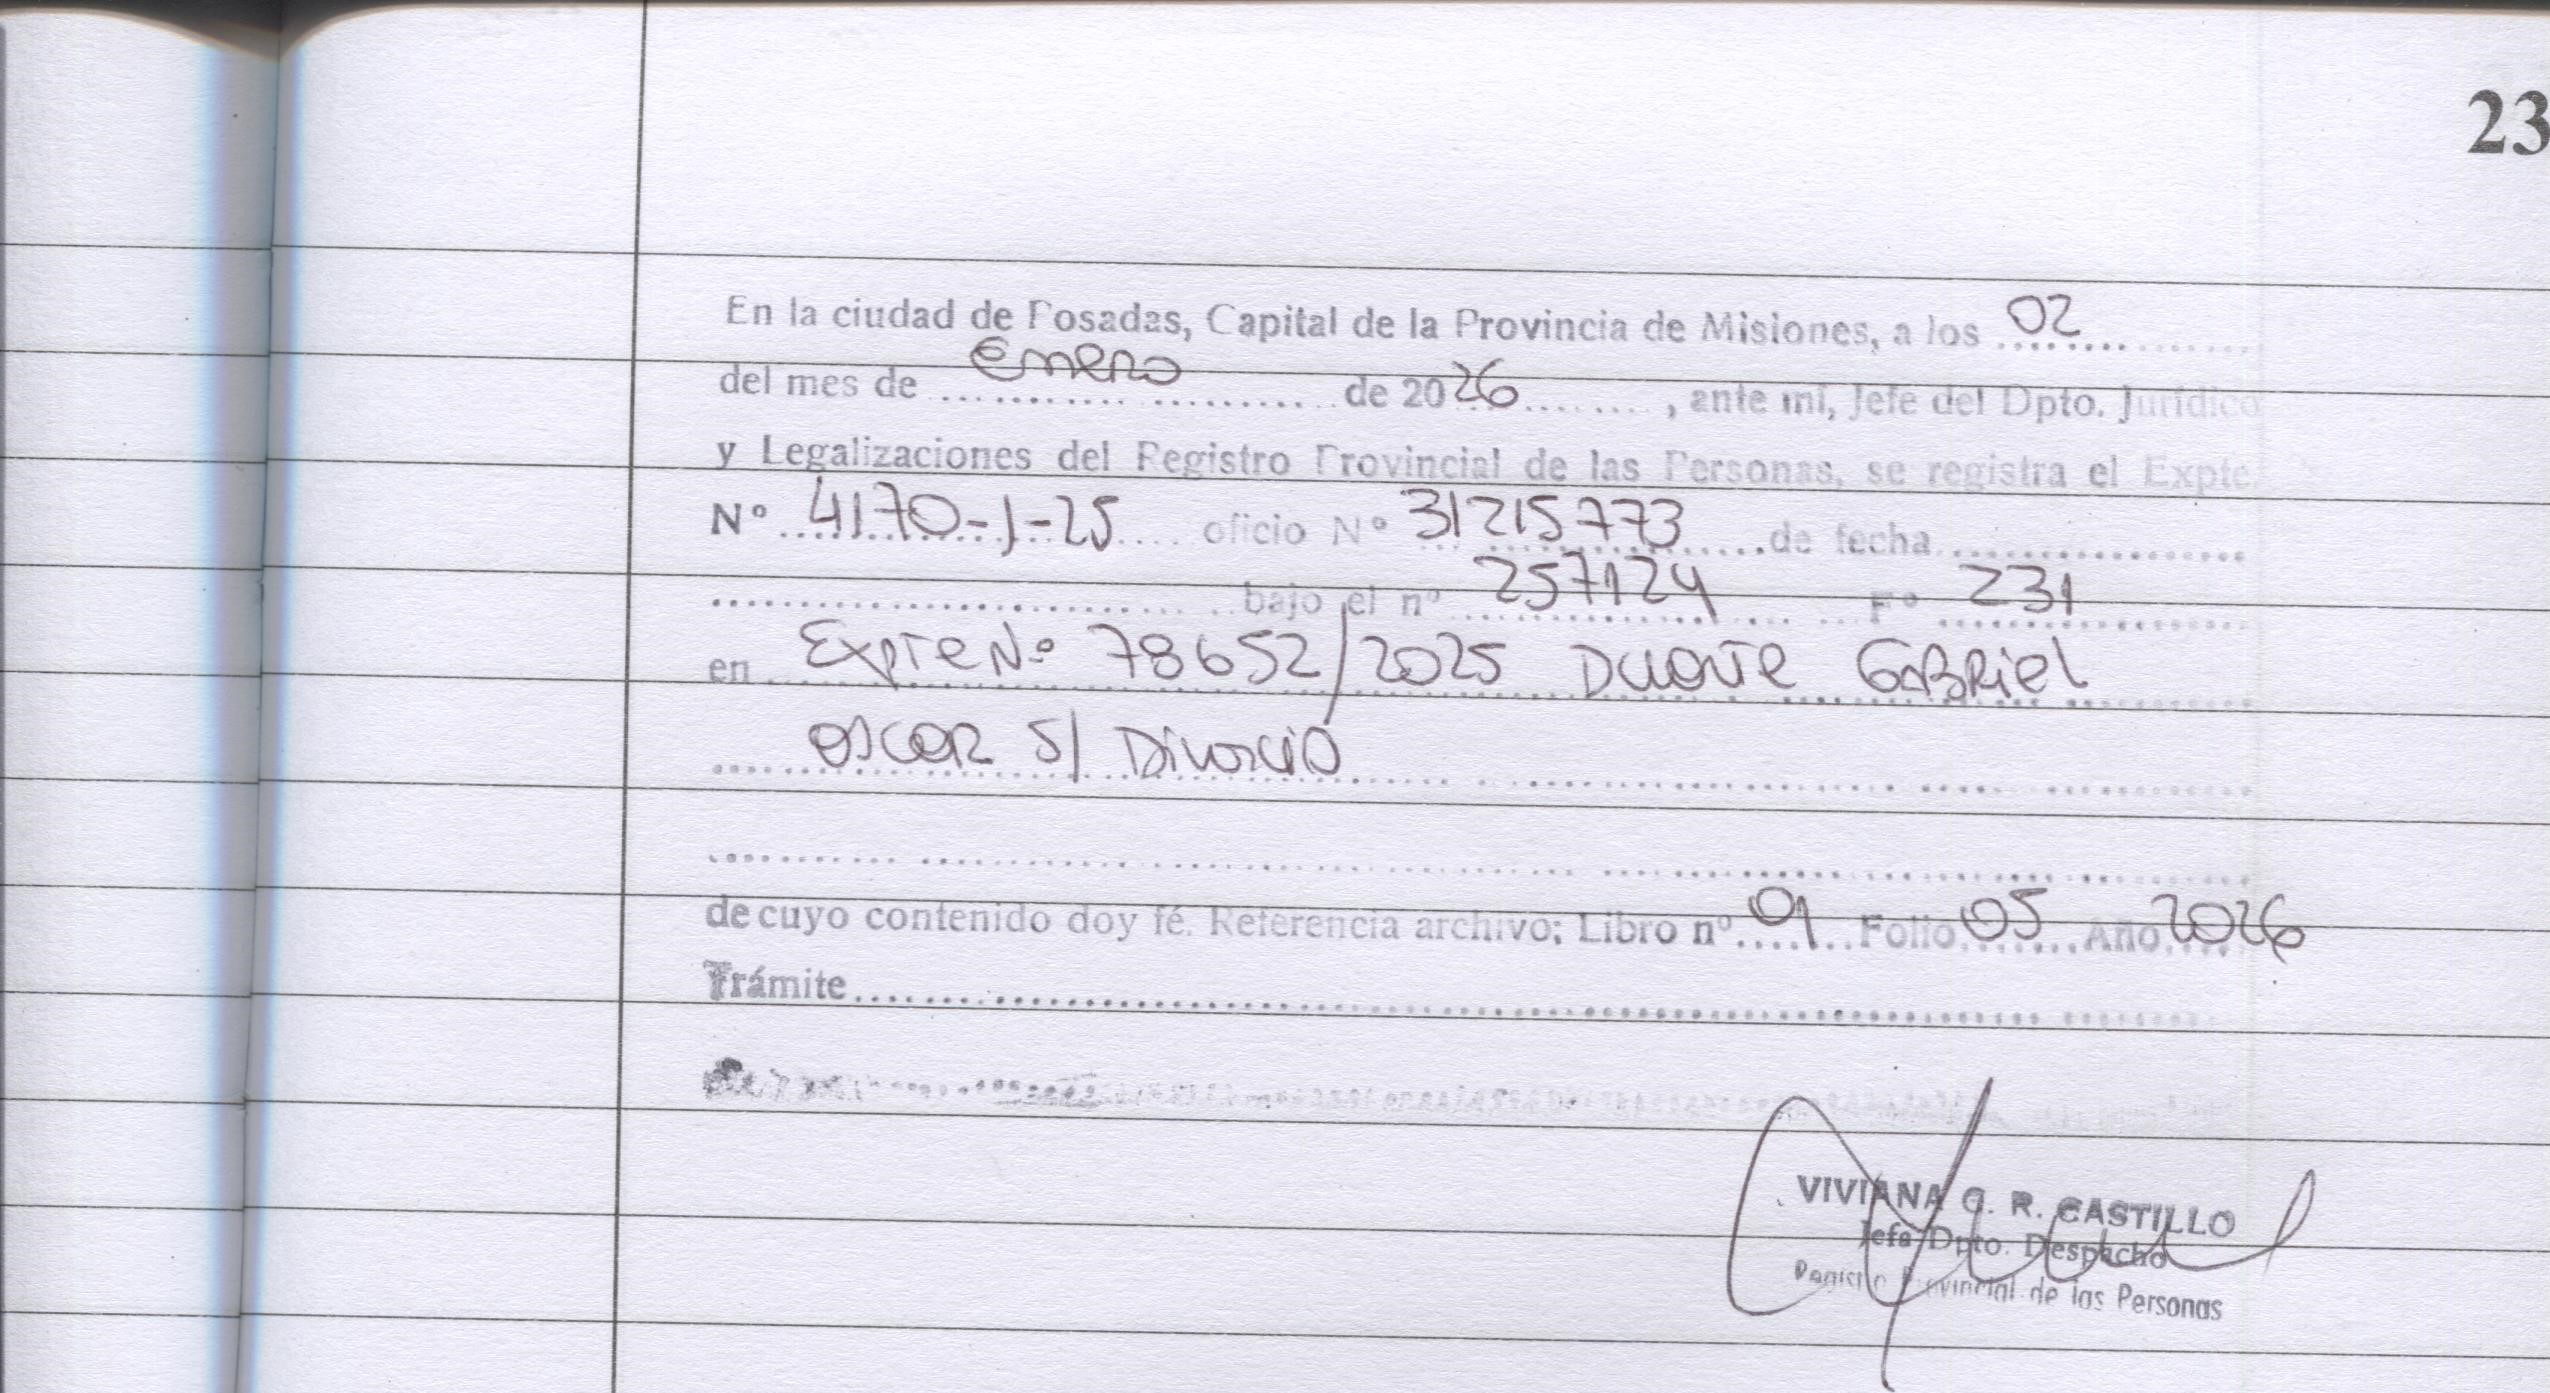 23
En la ciudad de Posadas, Capital de la Provincia de Misiones, a los 02
del mes de Enero de 2026, ante mí, Jefe del Dpto. Jurídico
y Legalizaciones del Registro Provincial de las Personas, se registra el Expte.
Nº 4170-J-25 oficio Nº 31215773 de fecha
bajo el nº 257124 Fº 231
en Expte Nº 78652/2025 Duarte Gabriel
Oscar S/ Divorcio
de cuyo contenido doy fé. Referencia archivo; Libro nº 01 Folio 05 Año 2026
Trámite
VIVIANA C. R. CASTILLO
Jefa Dpto. Despacho
Registro Provincial de las Personas